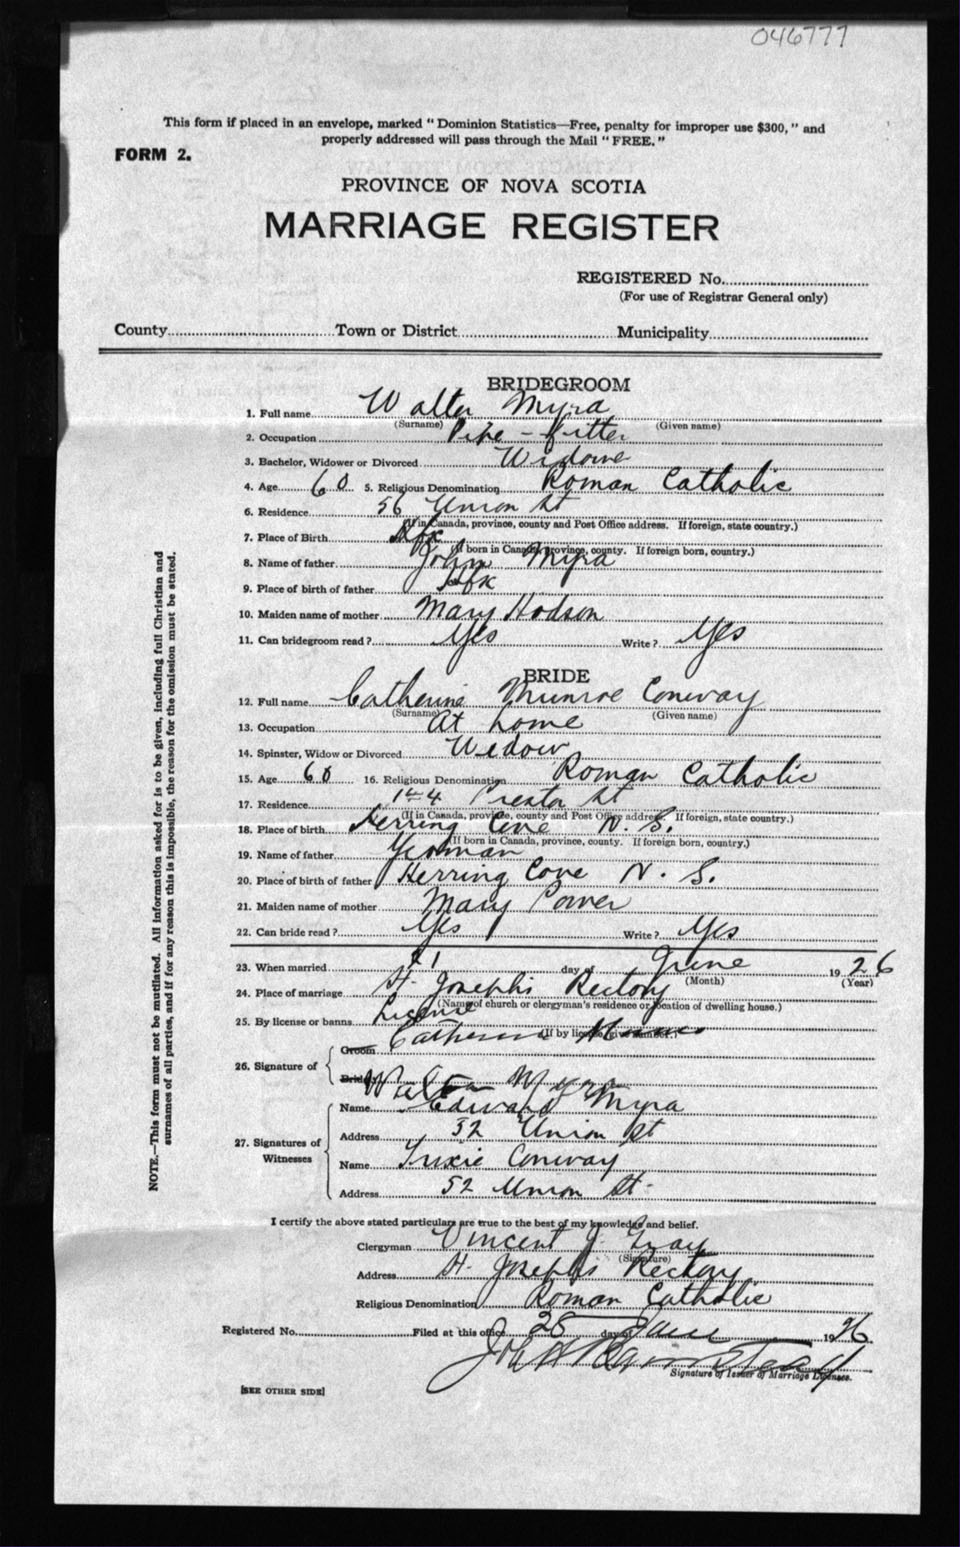 046777
This form if placed in an envelope, marked "Dominion Statistics—Free, penalty for improper use $300," and
properly addressed will pass through the Mail "FREE."
FORM 2.
PROVINCE OF NOVA SCOTIA
MARRIAGE REGISTER
REGISTERED No.
(For use of Registrar General only)
County Town or District Municipality
BRIDEGROOM
1. Full name Walter Myra
(Surname) (Given name)
2. Occupation Pipe-fitter
3. Bachelor, Widower or Divorced Widowe
4. Age 60 5. Religious Denomination Roman Catholic
6. Residence 56 Union St
(If in Canada, province, county and Post Office address. If foreign, state country.)
7. Place of Birth Hfx
(If born in Canada, province, county. If foreign born, country.)
8. Name of father John Myra
9. Place of birth of father Hfx
10. Maiden name of mother Mary Hodson
11. Can bridegroom read? Yes Write? Yes
BRIDE
12. Full name Catherine Munroe Conway
(Surname) (Given name)
13. Occupation At home
14. Spinster, Widow or Divorced Widow
15. Age 60 16. Religious Denomination Roman Catholic
17. Residence St
(If in Canada, province, county and Post Office address. If foreign, state country.)
18. Place of birth Herring Cove N. S.
(If born in Canada, province, county. If foreign born, country.)
19. Name of father
20. Place of birth of father Herring Cove N. S.
21. Maiden name of mother Mary Power
22. Can bride read? Yes Write? Yes
23. When married 21 day of June 1926
(Month) (Year)
24. Place of marriage St. Josephs Rectory
(Name of church or clergyman's residence or location of dwelling house.)
25. By license or banns License
(If by license give number.)
26. Signature of Groom Catherine
Bride Walter Myra
27. Signatures of Witnesses
Name Edward Myra
Address 52 Union St
Name Trixie Conway
Address 52 Union St.
I certify the above stated particulars are true to the best of my knowledge and belief.
Clergyman Vincent J.
(Signature)
Address St. Josephs Rectory
Religious Denomination Roman Catholic
Registered No. Filed at this office 28 day of June 1926.
Signature of Issuer of Marriage Licenses.
[SEE OTHER SIDE]
NOTE.—This form must not be mutilated. All information asked for is to be given, including full Christian and
surnames of all parties, and if for any reason this is impossible, the reason for the omission must be stated.